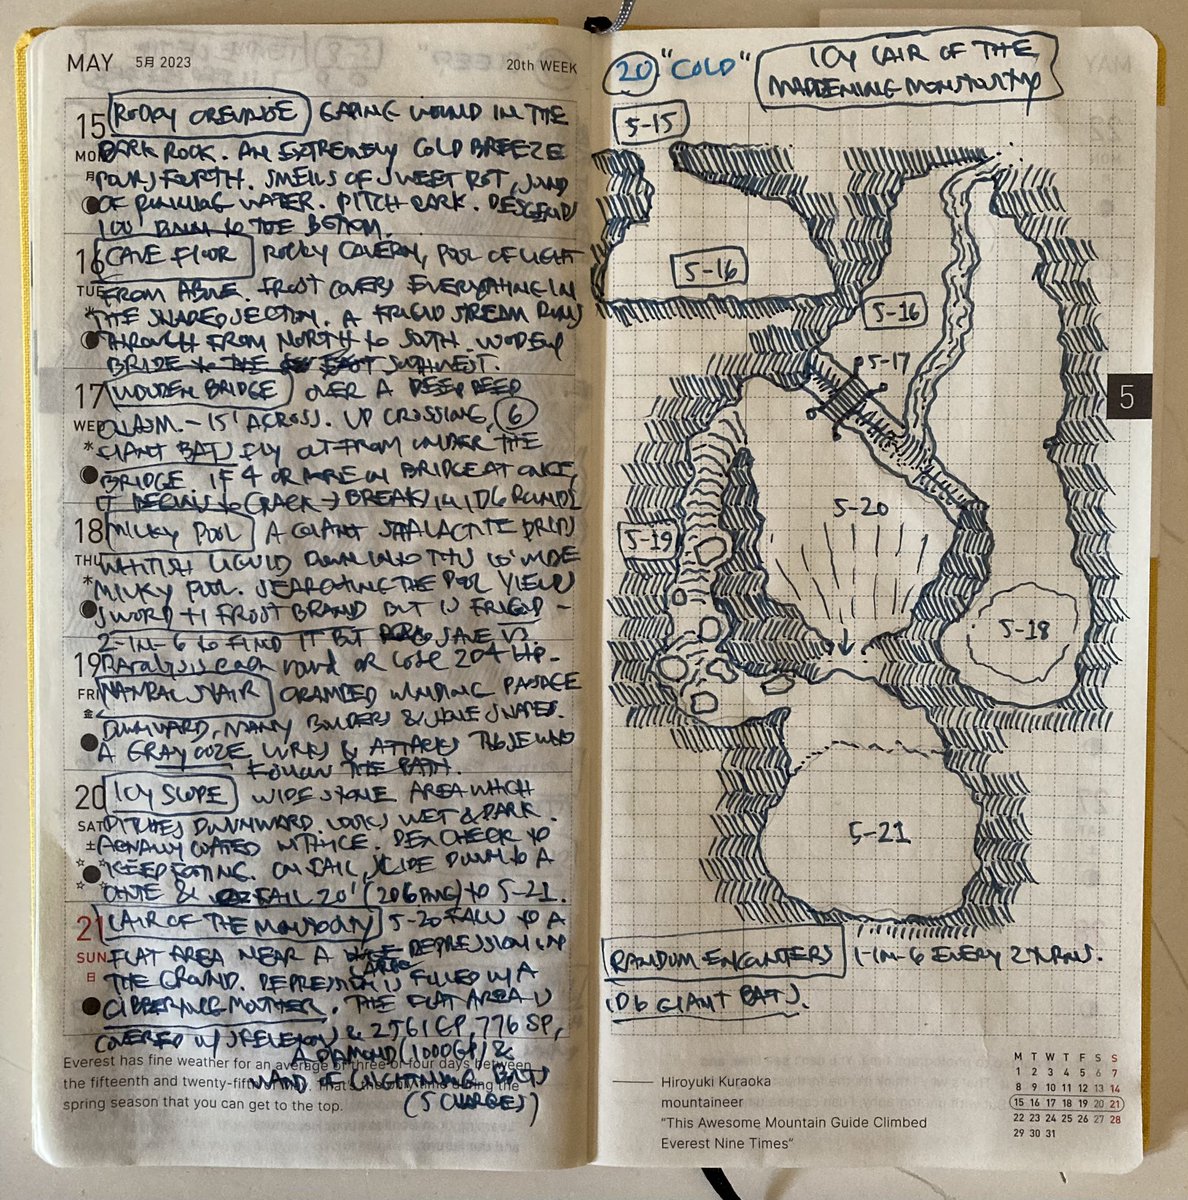 MAY 5月 2023 20th WEEK
15 MON 月
ROCKY CREVICE GAPING WOUND IN THE
DARK ROCK. AN EXTREMELY COLD BREEZE
POURS FOURTH. SMELLS OF SWEET ROT, SOUND
OF RUNNING WATER. PITCH DARK. DESCENDS
100' DOWN TO THE BOTTOM.
16 TUE
CAVE FLOOR ROCKY CAVERN, POOL OF LIGHT
FROM ABOVE. FROST COVERS EVERYTHING IN
THE SHADED SECTION. A FRIGID STREAM RUNS
THROUGH FROM NORTH to SOUTH. WOODEN
BRIDE to THE SOUTHWEST.
17 WED
WOODEN BRIDGE OVER A DEEP DEEP
CHASM. ~15' ACROSS. UP CROSSING, 6
GIANT BATS FLY OUT FROM UNDER THE
BRIDGE. IF 4 OR MORE ON BRIDGE AT ONCE,
IT BEGINS to CRACK → BREAKS IN 1D6 ROUNDS
18 THU
MILKY POOL A GIANT STALACTITE DRIPS
WHITISH LIQUID DOWN INTO THIS 15' WIDE
MILKY POOL. SEARCHING THE POOL YIELDS
SWORD +1 FROST BRAND BUT IS FRIGID -
2-IN-6 to FIND IT BUT SAVE VS.
Paralysis each round or lose 2D4 Hp.
19 FRI 金
NATURAL STAIR CRAMPED WINDING PASSAGE
DOWNWARD, MANY BOULDERS & STONE SHAPES.
A GRAY OOZE LURKS & ATTACKS THOSE WHO
FOLLOW THE PATH.
20 SAT 土
ICY SLOPE WIDE STONE AREA WHICH
PITCHES DOWNWARD. LOOKS WET & DARK.
ACTUALLY COATED WITH ICE. DEX CHECK TO
KEEP FOOTING. ON FAIL, SLIDE DOWN to A
& FALL 20' (2D6 DMG) to 5-21.
21 SUN 日
LAIR OF THE MONSTROSITY 5-20 FALLS to A
FLAT AREA NEAR A LARGE DEPRESSION IN
THE GROUND. DEPRESSION IS FILLED W/ A
GIBBERING MOUTHER. THE FLAT AREA IS
COVERED W/ SKELETONS & 2561 CP, 776 SP,
A DIAMOND (1000GP) &
WAND OF LIGHTNING BOLTS
(5 CHARGES)
Everest has fine weather for an average of three or four days between
the fifteenth and twenty-fifth of May. That's the only time during the
spring season that you can get to the top.
20 "COLD"
ICY LAIR OF THE
MADDENING MONSTROSITY
5-15
5-16
5-16
5-17
5-20
5-19
5-18
5
5-21
RANDOM ENCOUNTERS 1-IN-6 EVERY 2 TURNS.
1D6 GIANT BATS.
Hiroyuki Kuraoka
mountaineer
"This Awesome Mountain Guide Climbed
Everest Nine Times"
M T W T F S S
1 2 3 4 5 6 7
8 9 10 11 12 13 14
15 16 17 18 19 20 21
22 23 24 25 26 27 28
29 30 31